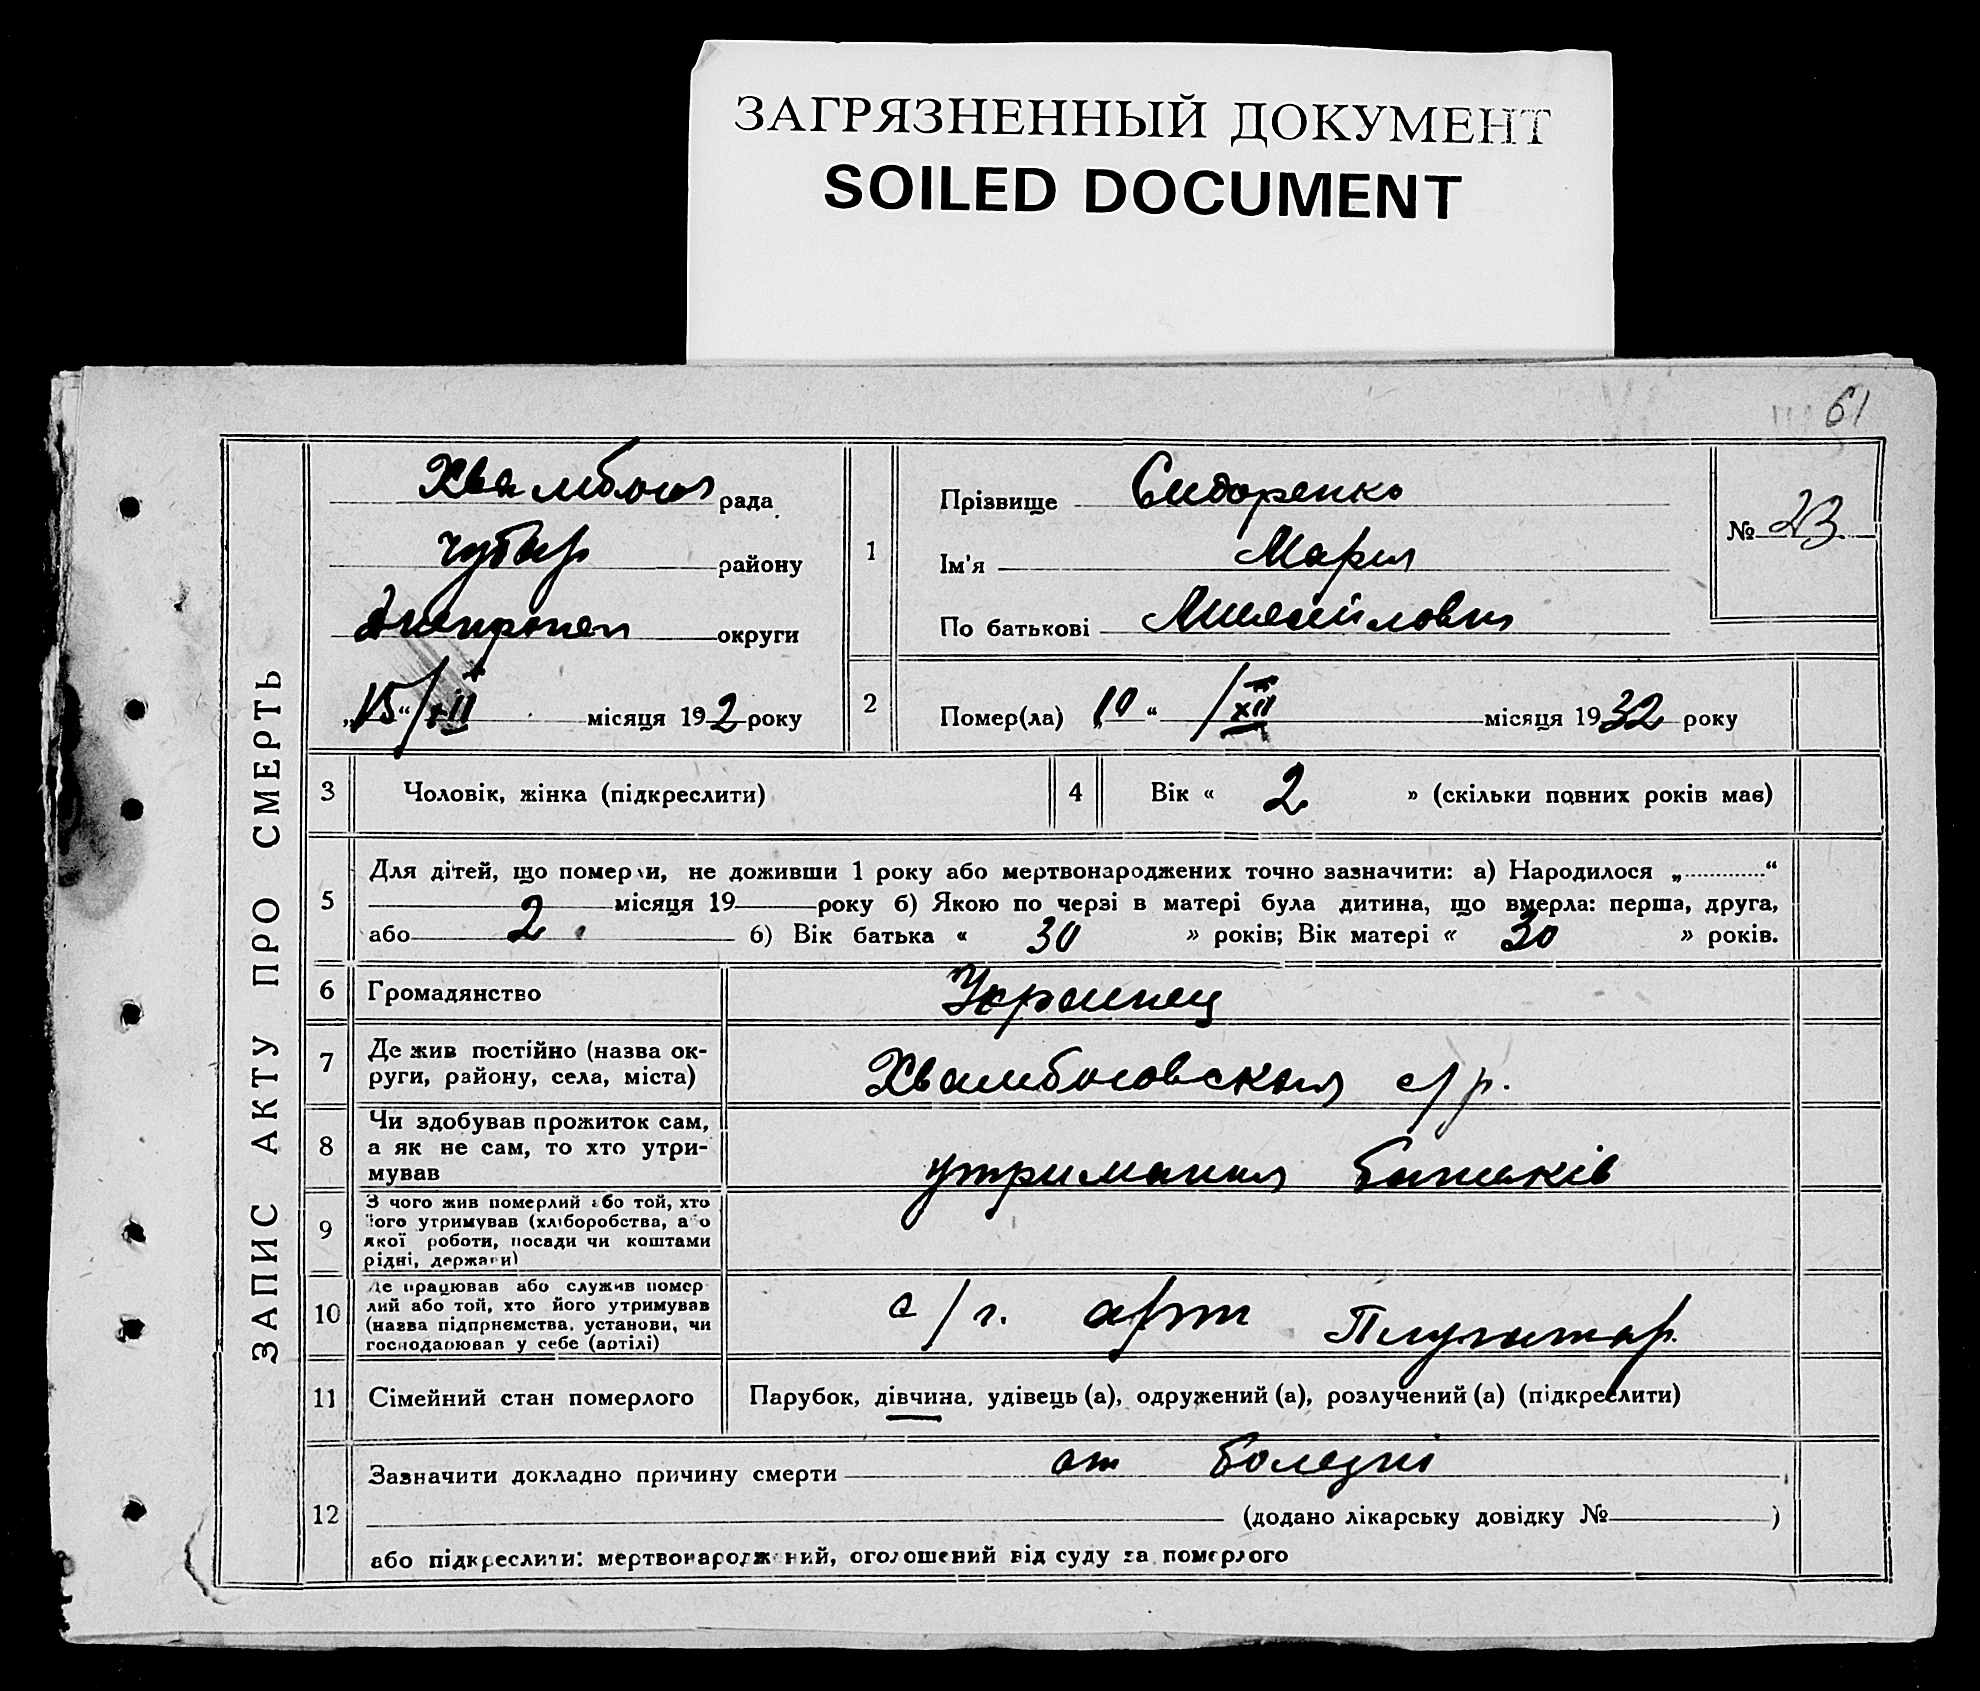 ЗАГРЯЗНЕННЫЙ ДОКУМЕНТ
SOILED DOCUMENT
61
ЗАПИС АКТУ ПРО СМЕРТЬ
рада
району
округи
„15“ / XII місяця 192 2 року
1
Прізвище Сидоренко
Ім'я Мария
По батькові
№ 23
2
Помер(ла) „10“ / XII місяця 1932 року
3 Чоловік, жінка (підкреслити)
4 Вік « 2 » (скільки повних років має)
5
Для дітей, що померли, не доживши 1 року або мертвонароджених точно зазначити: а) Народилося „ “
місяця 19 року б) Якою по черзі в матері була дитина, що вмерла: перша, друга,
або 2. б) Вік батька « 30 » років; Вік матері « 30 » років.
6 Громадянство Украинец
7 Де жив постійно (назва ок-
руги, району, села, міста)
с/р.
8 Чи здобував прожиток сам,
а як не сам, то хто утри-
мував
утримания батьків
9 З чого жив померлий або той, хто
його утримував (хліборобства, або
якої роботи, посади чи коштами
рідні, держави)
10 Де працював або служив помер
лий або той, хто його утримував
(назва підприємства, установи, чи
господарював у себе (артілі)
с/г. арт
11 Сімейний стан померлого
Парубок, дівчина, удівець (а), одружений (а), розлучений (а) (підкреслити)
12
Зазначити докладно причину смерти от болезні
(додано лікарську довідку № )
або підкреслити: мертвонароджений, оголошений від суду за померлого